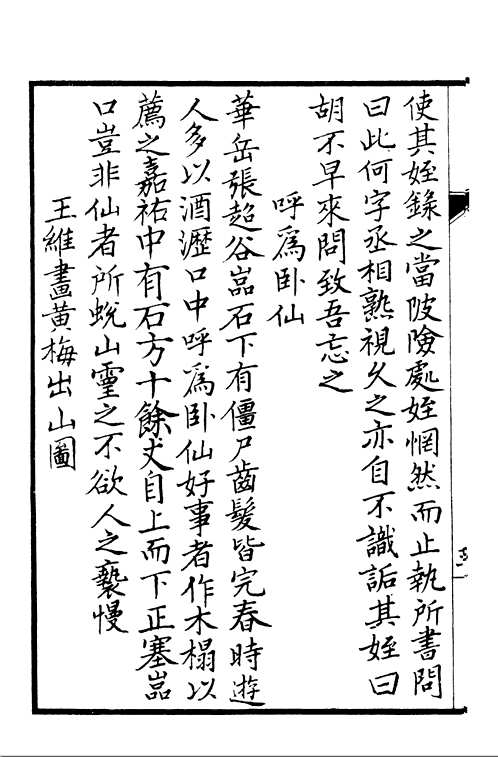 使其姪錄之當陂險處姪惘然而止執所書問
曰此何字丞相熟視久之亦自不識詬其姪曰
胡不早來問致吾忘之
呼爲卧仙
華岳張超谷嵓石下有僵尸齒髮皆完春時遊
人多以酒瀝口中呼爲卧仙好事者作木榻以
薦之嘉祐中有石方十餘丈自上而下正塞嵓
口豈非仙者所蛻山靈之不欲人之褻慢
王維畫黃梅出山圖